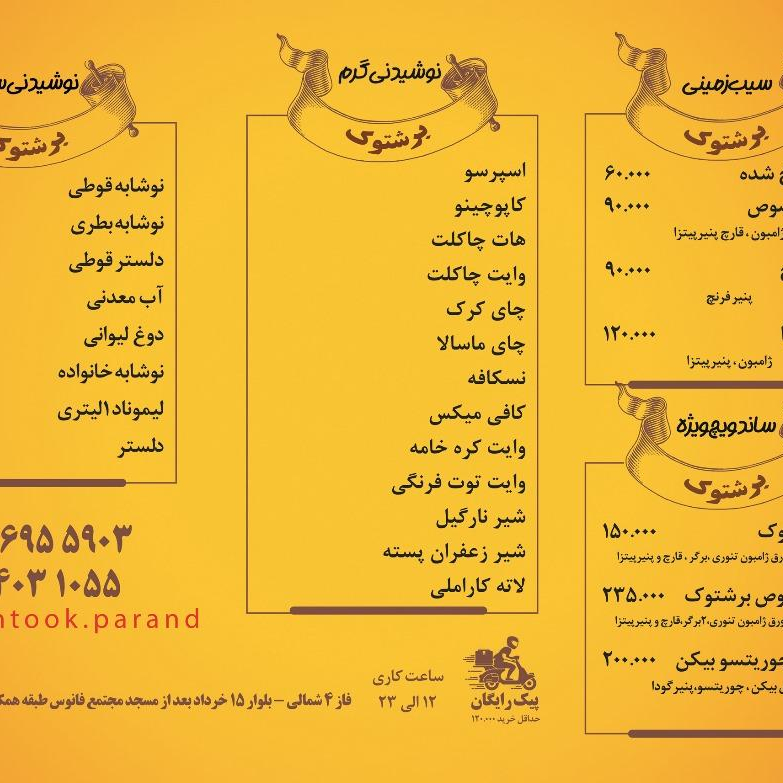 سیب‌زمینی
برشتوک
شده ۶۰.۰۰۰
۹۰.۰۰۰
ژامبون، قارچ پنیرپیتزا
۹۰.۰۰۰
پنیر فرنچ
۱۲۰.۰۰۰
ژامبون، پنیرپیتزا
ساندویچ ویژه
برشتوک
۱۵۰.۰۰۰
ژامبون تنوری، برگر، قارچ و پنیرپیتزا
برشتوک ۲۳۵.۰۰۰
ورق ژامبون تنوری،۲برگر،قارچ و پنیرپیتزا
چوریتسو بیکن ۲۰۰.۰۰۰
بیکن، چوریتسو،پنیرگودا
نوشیدنی گرم
برشتوک
اسپرسو
کاپوچینو
هات چاکلت
وایت چاکلت
چای کرک
چای ماسالا
نسکافه
کافی میکس
وایت کره خامه
وایت توت فرنگی
شیر نارگیل
شیر زعفران پسته
لاته کاراملی
نوشیدنی
برشتوک
نوشابه قوطی
نوشابه بطری
دلستر قوطی
آب معدنی
دوغ لیوانی
نوشابه خانواده
لیموناد ۱لیتری
دلستر
۶۹۵ ۵۹۰۳
۴۰۳ ۱۰۵۵
ntook.parand
پیک رایگان
حداقل خرید ۱۲۰.۰۰۰
ساعت کاری
۱۲ الی ۲۳
فاز ۴ شمالی – بلوار ۱۵ خرداد بعد از مسجد مجتمع فانوس طبقه